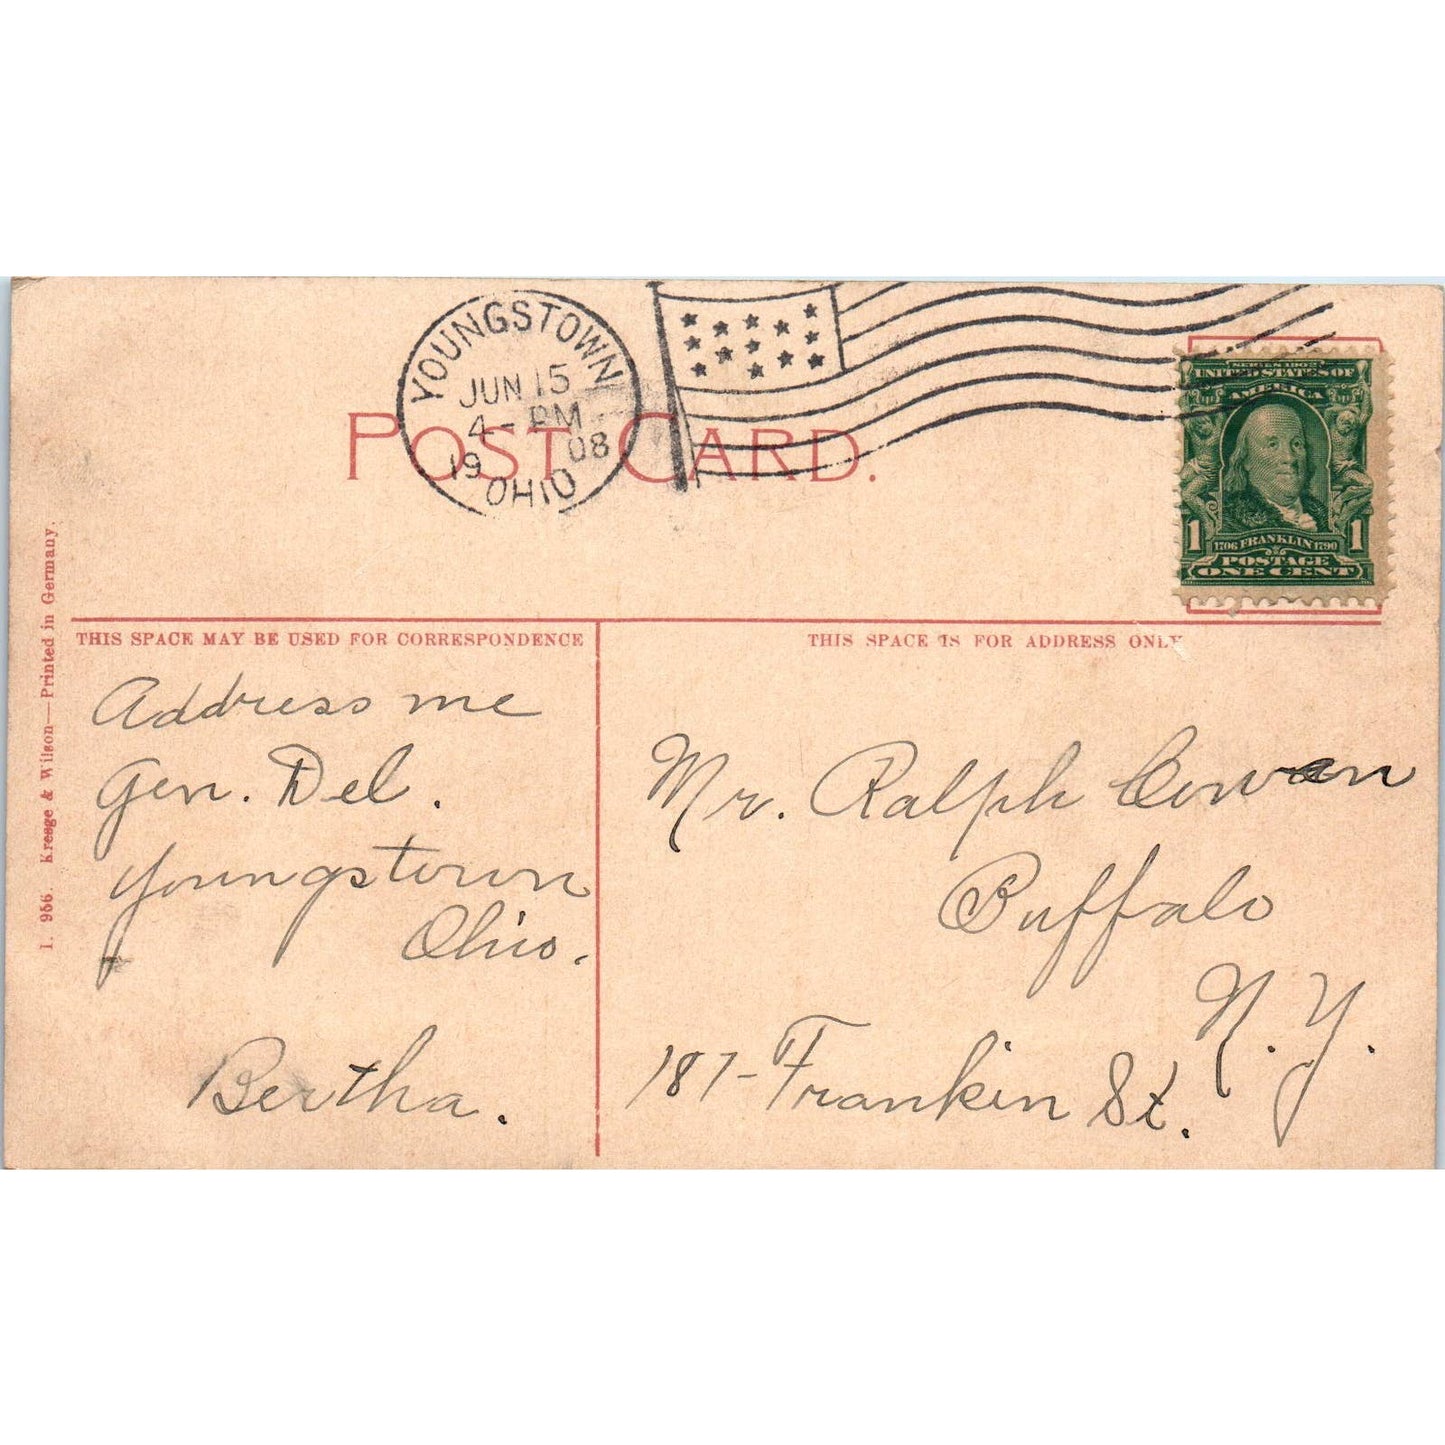 YOUNGSTOWN
JUN 15
4 - PM
19 08
OHIO
POST CARD.
SERIES 1902
UNITED STATES OF
AMERICA
1 1706 FRANKLIN 1790 1
POSTAGE
ONE CENT
THIS SPACE MAY BE USED FOR CORRESPONDENCE
THIS SPACE IS FOR ADDRESS ONLY
Address me
Gen. Del.
Youngstown
Ohio.
Bertha.
Mr. Ralph Cowan
Buffalo
N.Y.
187- Frankin St.
1. 956. Kresge & Wilson—Printed in Germany.